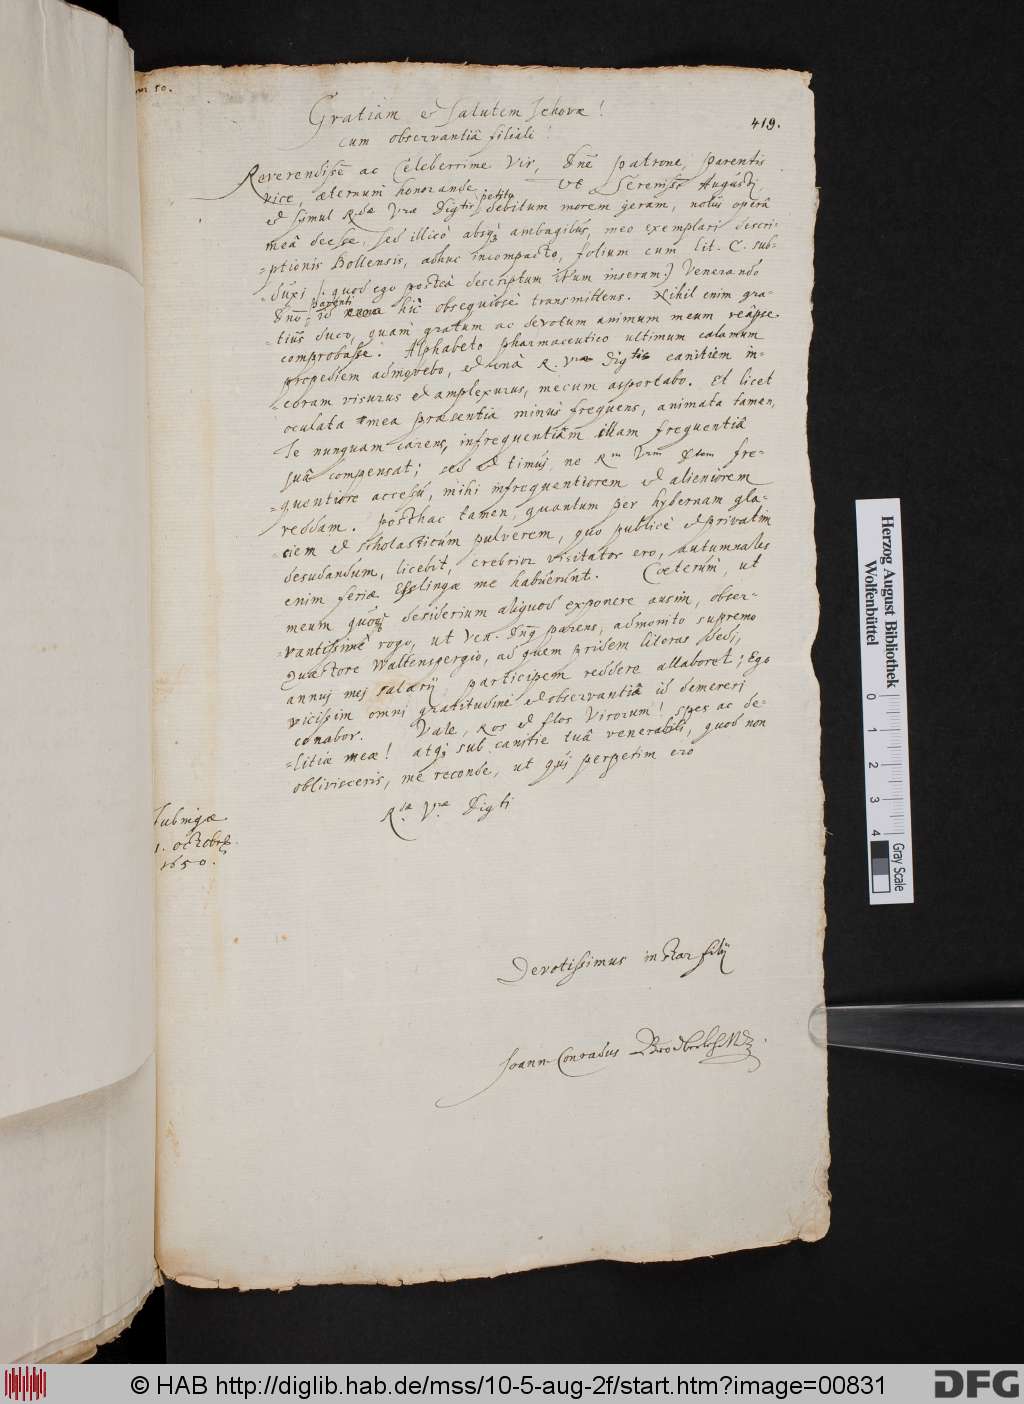 50.
419.
Gratiam et salutem Jehovae!
cum observantiâ filiali!
Reverendisse ac Celeberrime Vir, Dne patrone, parentis
vice, aeternum honorande. Ut Sereniss. Augusti,
et simul Rdae Vrae Digtis petito debitum morem geram, nolui operâ
meâ deesse, sed illicò absq; ambagibus, meo exemplari descri-
=ptionis Bollensis, adhuc incompacto, folium cum lit. C. sub-
=duxi (: quod ego posteà descriptum itum inseram:) Venerando
Dno parenti id hîc obsequiosè transmittens. Nihil enim gra-
=tius duco, quàm gratum ac devotum animum meum reâpse
comprobasse. Alphabeto pharmaceutico ultimum calamum
propediem admovebo, et unâ R. Vrae Digtis canitiem in-
=coram visurus et amplexurus, mecum asportabo. Et licet
oculata mea praesentia minus frequens, animata tamen,
Te nunquam carens, infrequentiam illam frequentiâ
suâ compensat; sed et timui, ne Rm Vrm Dtem fre-
=quentiore accessu, mihi infrequentiorem et alieniorem
reddam. Posthac tamen, quantum per hybernam gla-
=ciem et scholasticum pulverem, quo publicè et privatim
desudandum, licebit, crebrior visitator ero, autumnales
enim feriae Esslingae me habuerunt. Coeterùm, ut
meum quoq; desiderium aliquod exponere ausim, obser-
=vantissimè rogo, ut Ven. Dnq parens, admonito supremo
Quaestore Waltenspergio, ad quem pridem literas dedi,
annui mei salarij participem reddere allaboret; Ego
vicissim omni gratitudine et observantiâ id demereri
conabor. Vale, Ros et flos Virorum! spes ac de-
=litiae meae! atq; sub canitie tuâ venerabili, quod non
oblivisceris, me reconde, ut qui perpetim ero
Rdae Vrae Digti
Tubingae
1. octobr.
1650.
Devotissimus instar filij
Joann-Conradus Brodbeckh MD
Herzog August Bibliothek
Wolfenbüttel
0 1 2 3 4
Gray Scale
© HAB http://diglib.hab.de/mss/10-5-aug-2f/start.htm?image=00831
DFG